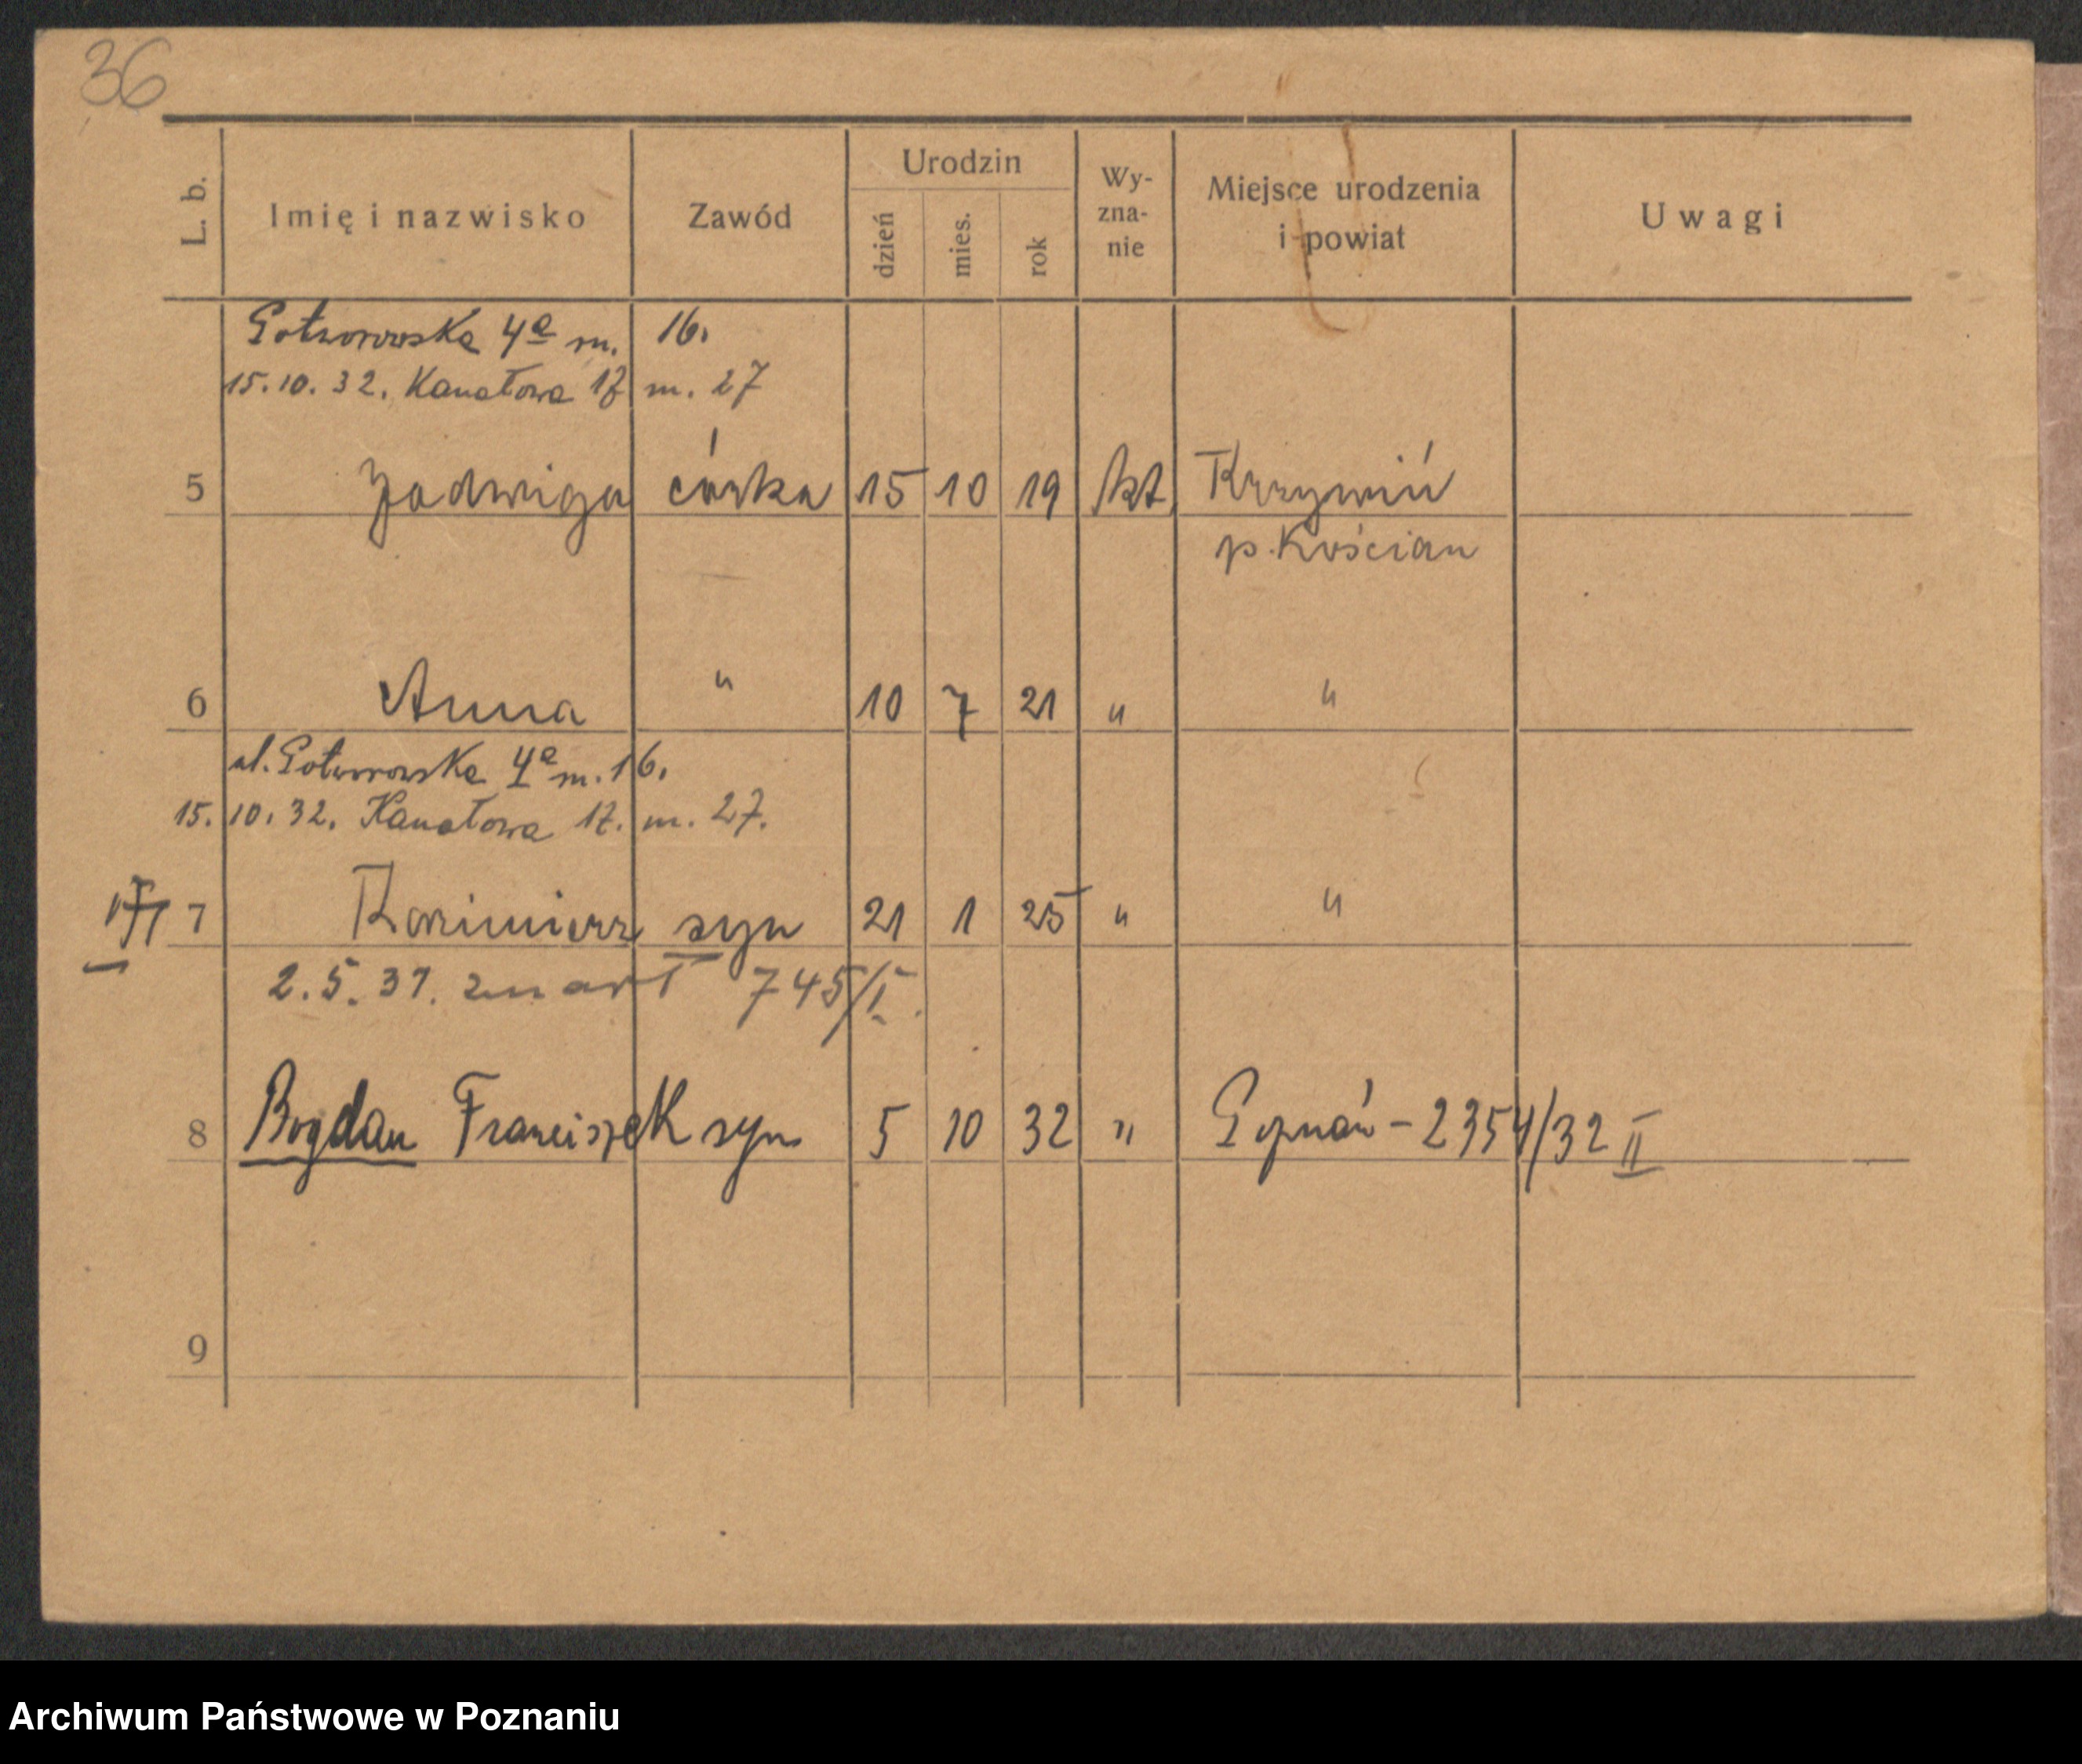 36
L. b. Imię i nazwisko Zawód Urodzin dzień mies. rok Wy-zna-nie Miejsce urodzenia i powiat Uwagi
Potworowska 4a m. 16.
15.10.32. Kanałowa 17 m. 27
5 Jadwiga córka 15 10 19 kt. Krzywiń
p. Kościan
6 Anna " 10 7 21 " "
ul. Potworowska 4a m. 16.
15.10.32. Kanałowa 17. m. 27.
7 Kazimierz syn 21 1 25 " "
2.5.31. zmarł 745/I.
8 Bogdan Franciszek syn 5 10 32 " Poznań - 2354/32 II
9
Archiwum Państwowe w Poznaniu